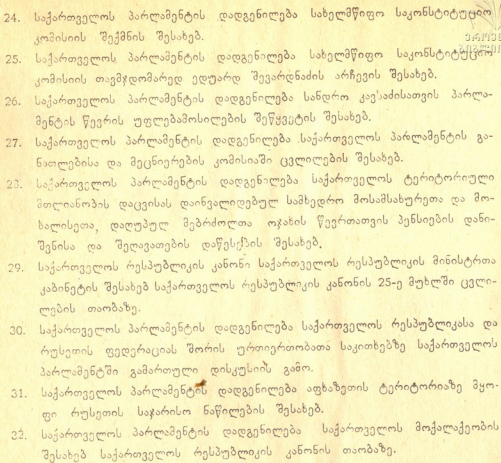 24. საქართველოს პარლამენტის დადგენილება სახელმწიფო საკონსტიტუციო
კომისიის შექმნის შესახებ.
25. საქართველოს პარლამენტის დადგენილება სახელმწიფო საკონსტიტუციო
კომისიის თავმჯდომარედ ედუარდ შევარდნაძის არჩევის შესახებ.
26. საქართველოს პარლამენტის დადგენილება სანდრო კავსაძისათვის პარლა-
მენტის წევრის უფლებამოსილების შეწყვეტის შესახებ.
27. საქართველოს პარლამენტის დადგენილება საქართველოს პარლამენტის გა-
ნათლებისა და მეცნიერების კომისიაში ცვლილების შესახებ.
28. საქართველოს პარლამენტის დადგენილება საქართველოს ტერიტორიული
მთლიანობის დაცვისას დაინვალიდებულ სამხედრო მოსამსახურეთა და მო-
ხალისეთა, დაღუპულ მებრძოლთა ოჯახის წევრთათვის პენსიების დანი-
შვნისა და შეღავათების დაწესების შესახებ.
29. საქართველოს რესპუბლიკის კანონი საქართველოს რესპუბლიკის მინისტრთა
კაბინეტის შესახებ საქართველოს რესპუბლიკის კანონის 25-ე მუხლში ცვლი-
ლების თაობაზე.
30. საქართველოს პარლამენტის დადგენილება საქართველოს რესპუბლიკასა და
რუსეთის ფედერაციას შორის ურთიერთობათა საკითხებზე საქართველოს
პარლამენტში გამართული დისკუსიის გამო.
31. საქართველოს პარლამენტის დადგენილება აფხაზეთის ტერიტორიაზე მყო-
ფი რუსეთის საჯარისო ნაწილების შესახებ.
32. საქართველოს პარლამენტის დადგენილება საქართველოს მოქალაქეობის
შესახებ საქართველოს რესპუბლიკის კანონის თაობაზე.